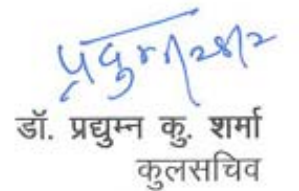 डॉ. प्रद्युम्न कु. शर्मा
कुलसचिव